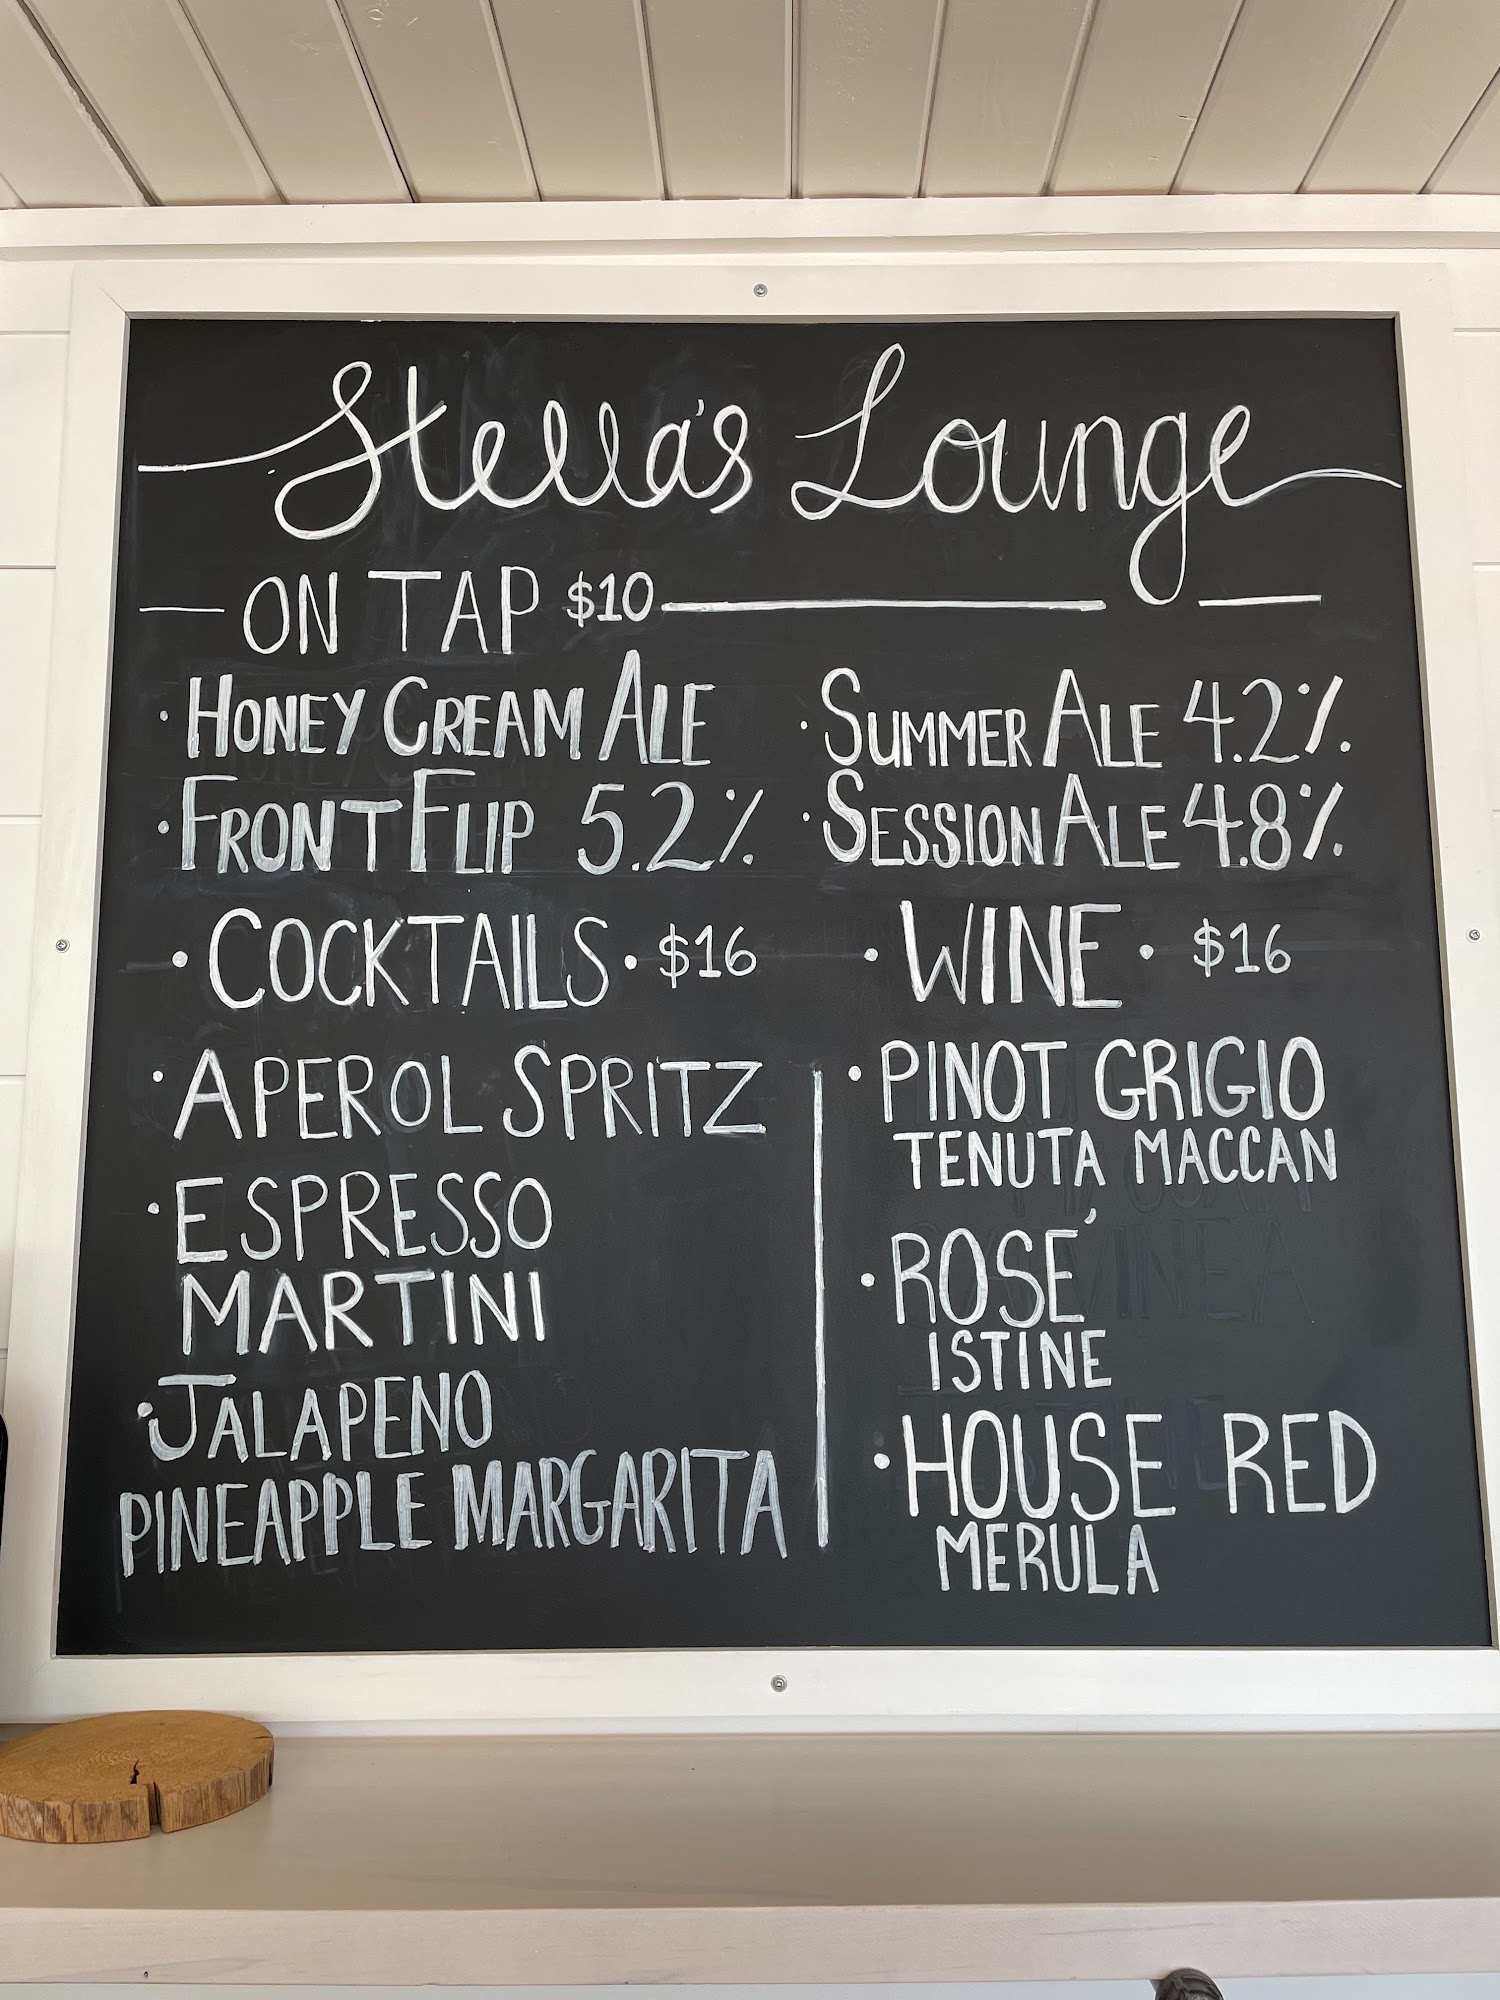 Stella's Lounge
ON TAP $10
• HONEY CREAM ALE
• FRONT FLIP 5.2%
• SUMMER ALE 4.2%
• SESSION ALE 4.8%
• COCKTAILS • $16
• APEROL SPRITZ
• ESPRESSO
MARTINI
• JALAPENO
PINEAPPLE MARGARITA
• WINE • $16
• PINOT GRIGIO
TENUTA MACCAN
• ROSÉ
ISTINE
• HOUSE RED
MERULA